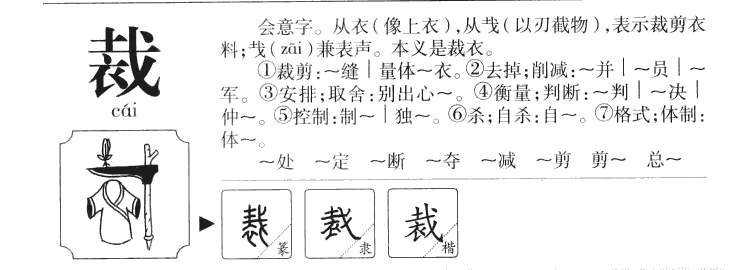 裁
cái
会意字。从衣(像上衣),从𢦏(以刃截物),表示裁剪衣
料;𢦏(zāi)兼表声。本义是裁衣。
①裁剪:~缝|量体~衣。②去掉;削减:~并|~员|~
军。③安排;取舍:别出心~。④衡量;判断:~判|~决|
仲~。⑤控制:制~|独~。⑥杀;自杀:自~。⑦格式;体制:
体~。
~处 ~定 ~断 ~夺 ~减 ~剪 剪~ 总~
裁 篆 裁 隶 裁 楷